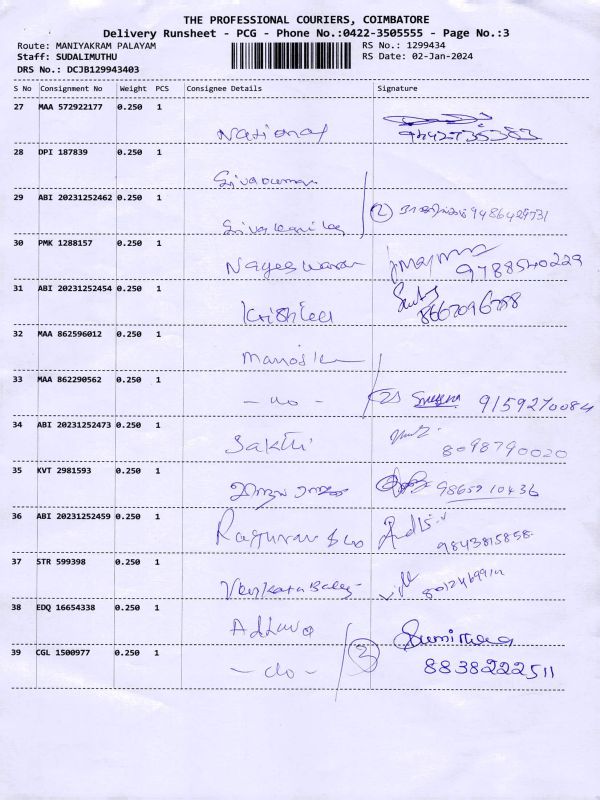 THE PROFESSIONAL COURIERS, COIMBATORE
Delivery Runsheet - PCG - Phone No.:0422-3505555 - Page No.:3
Route: MANIYAKRAM PALAYAM
RS No.: 1299434
Staff: SUDALIMUTHU
RS Date: 02-Jan-2024
DRS No.: DCJB129943403
S No Consignment No Weight PCS Consignee Details Signature
27 MAA 572922177 0.250 1
National
28 DPI 187839 0.250 1
Sivakumar
29 ABI 20231252462 0.250 1
② 9486429731
30 PMK 1288157 0.250 1
Nageswaran 9788540229
31 ABI 20231252454 0.250 1
8667096758
32 MAA 862596012 0.250 1
33 MAA 862290562 0.250 1
- do - 9159270084
34 ABI 20231252473 0.250 1
Sakthi 8098790020
35 KVT 2981593 0.250 1
9865910436
36 ABI 20231252459 0.250 1
9843815858
37 STR 599398 0.250 1
38 EDQ 16654338 0.250 1
39 CGL 1500977 0.250 1
- do - 8838222511